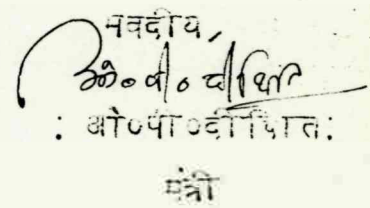 भवदीय,
ओ०पी०दीक्षित
: ओ०पी०दीक्षित:
मंत्री